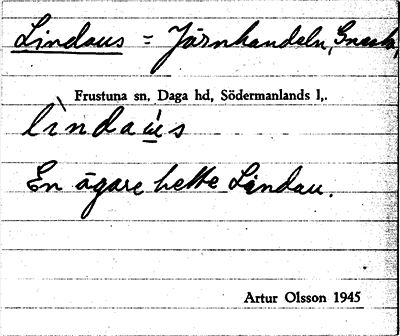 Lindaus = Järnhandeln, Gnesta,
Frustuna sn, Daga hd, Södermanlands l,.
lìndaùs
En ägare hette Lindau.
Artur Olsson 1945